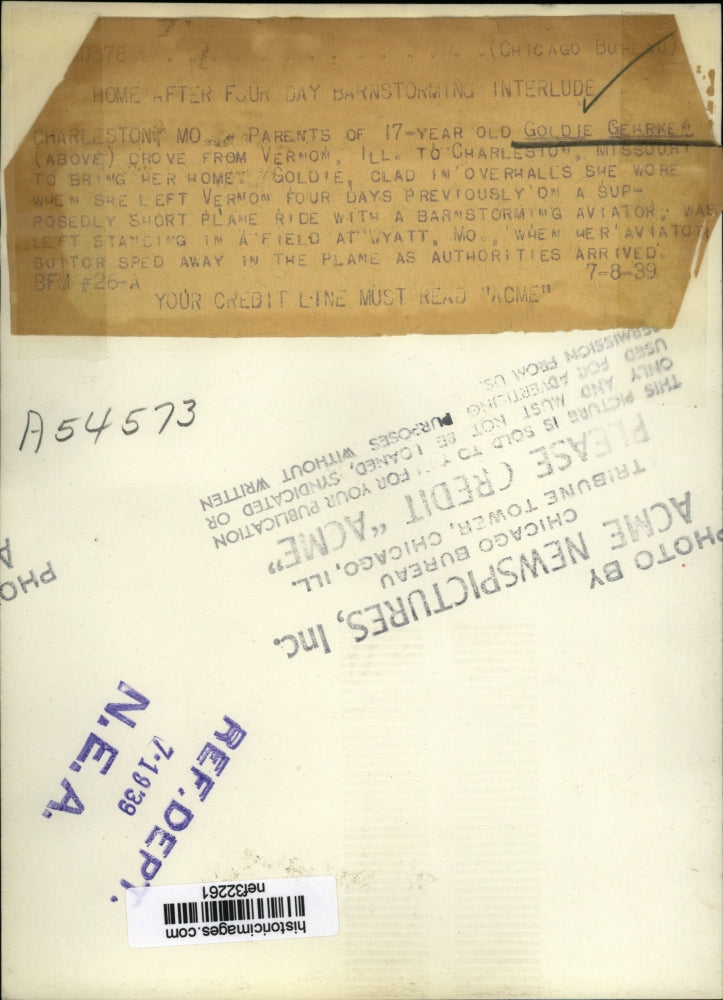 (CHICAGO BUREAU)
HOME AFTER FOUR DAY BARNSTORMING INTERLUDE
CHARLESTON, MO... PARENTS OF 17-YEAR OLD GOLDIE GEHRKEN
(ABOVE) DROVE FROM VERNON, ILL. TO CHARLESTON, MISSOURI
TO BRING HER HOME. GOLDIE, CLAD IN OVERHALLS SHE WORE
WHEN SHE LEFT VERNON FOUR DAYS PREVIOUSLY ON A SUP-
POSEDLY SHORT PLANE RIDE WITH A BARNSTORMING AVIATOR, WAS
LEFT STANDING IN A FIELD AT WYATT, MO., WHEN HER AVIATOR
SUITOR SPED AWAY IN THE PLANE AS AUTHORITIES ARRIVED.
BFM #26-A 7-8-39
YOUR CREDIT LINE MUST READ "ACME"
A54573
PHOTO BY
ACME NEWSPICTURES, Inc.
CHICAGO BUREAU
TRIBUNE TOWER, CHICAGO, ILL.
PLEASE CREDIT "ACME"
THIS PICTURE IS SOLD TO FOR YOUR PUBLICATION
ONLY AND MUST NOT BE LOANED, SYNDICATED OR
USED FOR ADVERTISING PURPOSES WITHOUT WRITTEN
PERMISSION FROM US.
PHO
A
REF. DEPT.
7-1939
N.E.A.
historicimages.com
nef32261